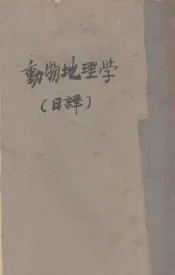 動物地理学
（日譯）